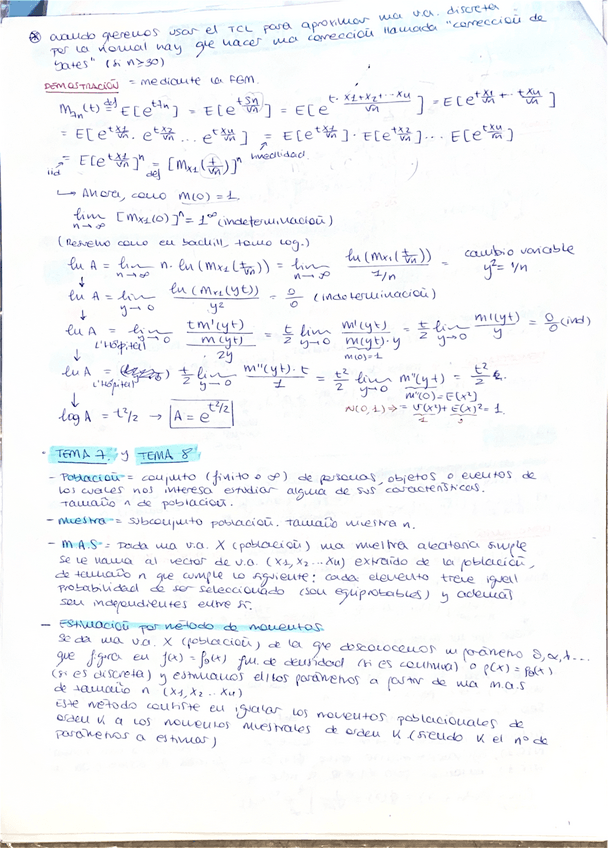 ⊛ cuando queremos usar el TCL para aproximar una v.a. discreta
por la normal hay que hacer una corrección llamada "corrección de
Yates" (si n≥30)
DEMOSTRACIÓN = mediante la FGM.
M_{Zn}(t) =(def) E[e^{tZn}] = E[e^{t Sn/√n}] = E[e^{t· (X1+X2+...Xn)/√n}] = E[e^{t X1/√n + ... t Xn/√n}]
= E[e^{t X1/√n} · e^{t X2/√n} ... e^{t Xn/√n}] = E[e^{t X1/√n}] · E[e^{t X2/√n}] ... E[e^{t Xn/√n}]
linealidad
iid = E[e^{t X1/√n}]^n =(def) [M_{X1}(t/√n)]^n
↳ Ahora, como M(0) = 1.
lim n→∞ [M_{X1}(0)]^n = 1^∞ (indeterminación)
(Resuelvo como en bachill, tomo log.)
ln A = lim n→∞ n · ln(M_{X1}(t/√n)) = lim n→∞ ln(M_{X1}(t/√n)) / (1/n) = cambio variable y² = 1/n
↓
ln A = lim y→0 ln(M_{X1}(yt)) / y² = 0/0 (indeterminación)
↓
ln A = (L'Hôpital) lim y→0 (t m'(yt) / m(yt)) / 2y = t/2 lim y→0 m'(yt) / (m(yt)·y) = t/2 lim y→0 m'(yt)/y = 0/0 (ind)
m(0)=1
↓
ln A = (L'Hôpital) t/2 lim y→0 m''(yt)·t / 1 = t²/2 lim y→0 m''(yt) = t²/2
m''(0) = E(X²)
N(0,1) → = V(X²)+E(X)² = 1.
↓
log A = t²/2 → A = e^{t²/2}
· TEMA 7 y TEMA 8
- Población = conjunto (finito o ∞) de personas, objetos o eventos de
los cuales nos interesa estudiar alguna de sus características.
tamaño n de población.
- muestra = subconjunto población. Tamaño muestra n.
- M.A.S = Dada una v.a. X (población) una muestra aleatoria simple
se le llama al vector de v.a. (X1, X2 ... Xn) extraído de la población,
de tamaño n que cumple lo siguiente: cada elemento tiene igual
probabilidad de ser seleccionado (son equiprobables) y además
son independientes entre sí.
- Estimación por método de momentos.
Se da una v.a. X (población), de la que desconocemos un parámetro θ, α, λ...
que figura en f(x) = fθ(x) fun. de densidad (si es continua) o p(x) = pθ(x)
(si es discreta) y estimamos el/los parámetros a partir de una m.a.s
de tamaño n (X1, X2 ... Xn)
Este método consiste en igualar los momentos poblacionales de
orden K a los momentos muestrales de orden K (siendo K el nº de
parámetros a estimar)